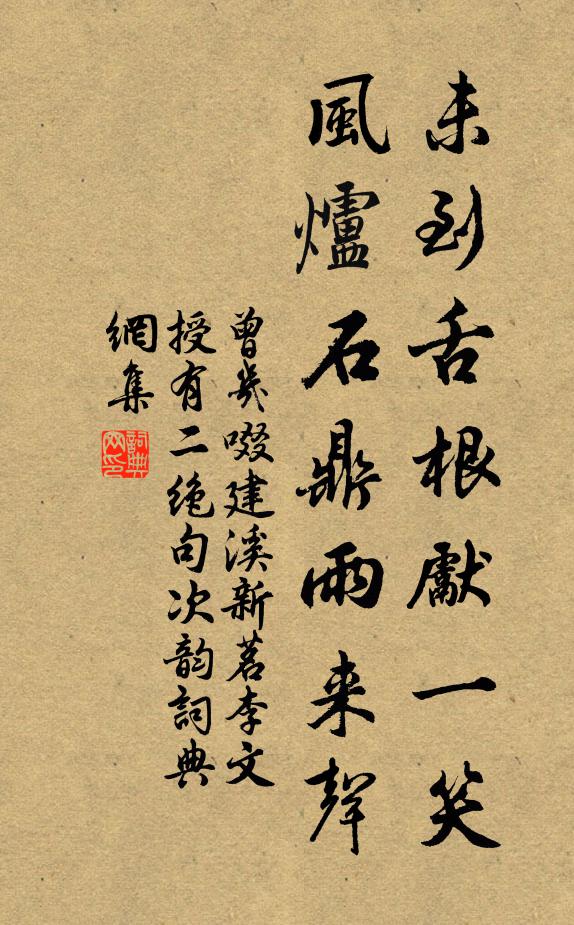 未到舌根獻一笑
風爐石鼎雨来聲
曾幾啜建溪新茗李文
授有二絶句次韵詞典
網集
詞典
网印